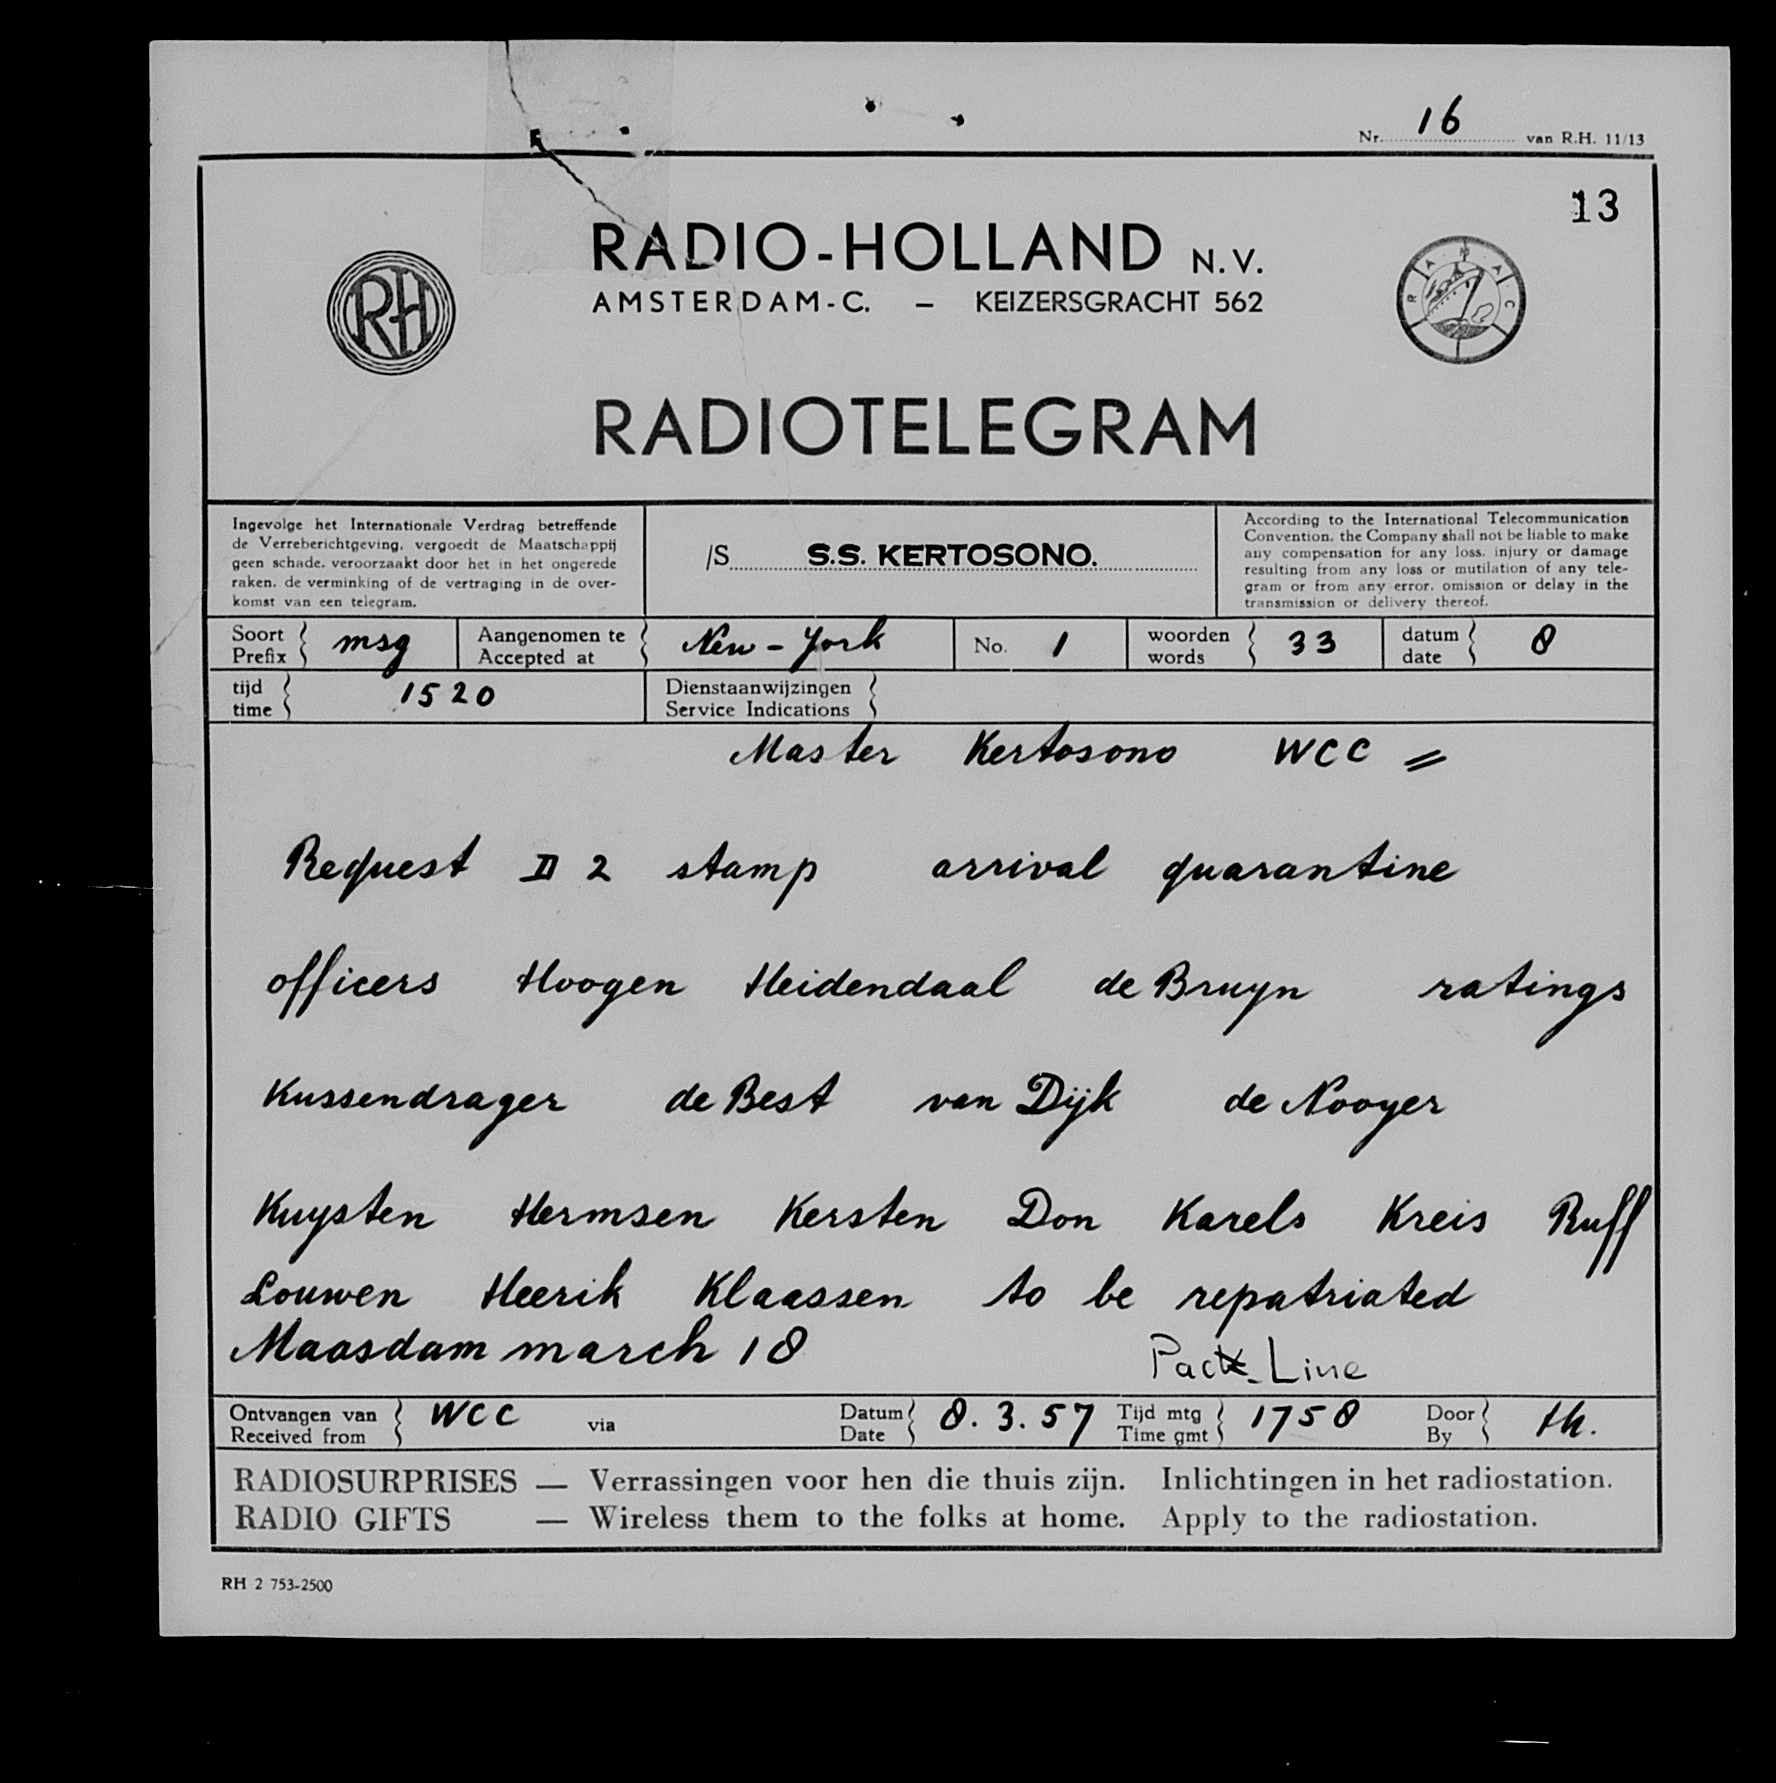 Nr. 16 van R.H. 11/13
13
RADIO-HOLLAND N.V.
AMSTERDAM-C. – KEIZERSGRACHT 562
RH
RAMAC
RADIOTELEGRAM
Ingevolge het Internationale Verdrag betreffende
de Verreberichtgeving, vergoedt de Maatschappij
geen schade, veroorzaakt door het in het ongerede
raken, de verminking of de vertraging in de over-
komst van een telegram.
/S S.S. KERTOSONO.
According to the International Telecommunication
Convention, the Company shall not be liable to make
any compensation for any loss, injury or damage
resulting from any loss or mutilation of any tele-
gram or from any error, omission or delay in the
transmission or delivery thereof.
Soort
Prefix
msg
Aangenomen te
Accepted at
New-York
No. 1
woorden
words
33
datum
date
8
tijd
time
1520
Dienstaanwijzingen
Service Indications
Master Kertosono WCC =
Request D 2 stamp arrival quarantine
officers Hoogen Heidendaal de Bruyn ratings
Kussendrager de Best van Dijk de Nooyer
Kuysten Hermsen Kersten Don Karels Kreis Ruff
Louwen Heerik Klaassen to be repatriated
Maasdam march 18
Pac Line
Ontvangen van
Received from
WCC
via
Datum
Date
8.3.57
Tijd mtg
Time gmt
1758
Door
By
th.
RADIOSURPRISES — Verrassingen voor hen die thuis zijn. Inlichtingen in het radiostation.
RADIO GIFTS — Wireless them to the folks at home. Apply to the radiostation.
RH 2 753-2500